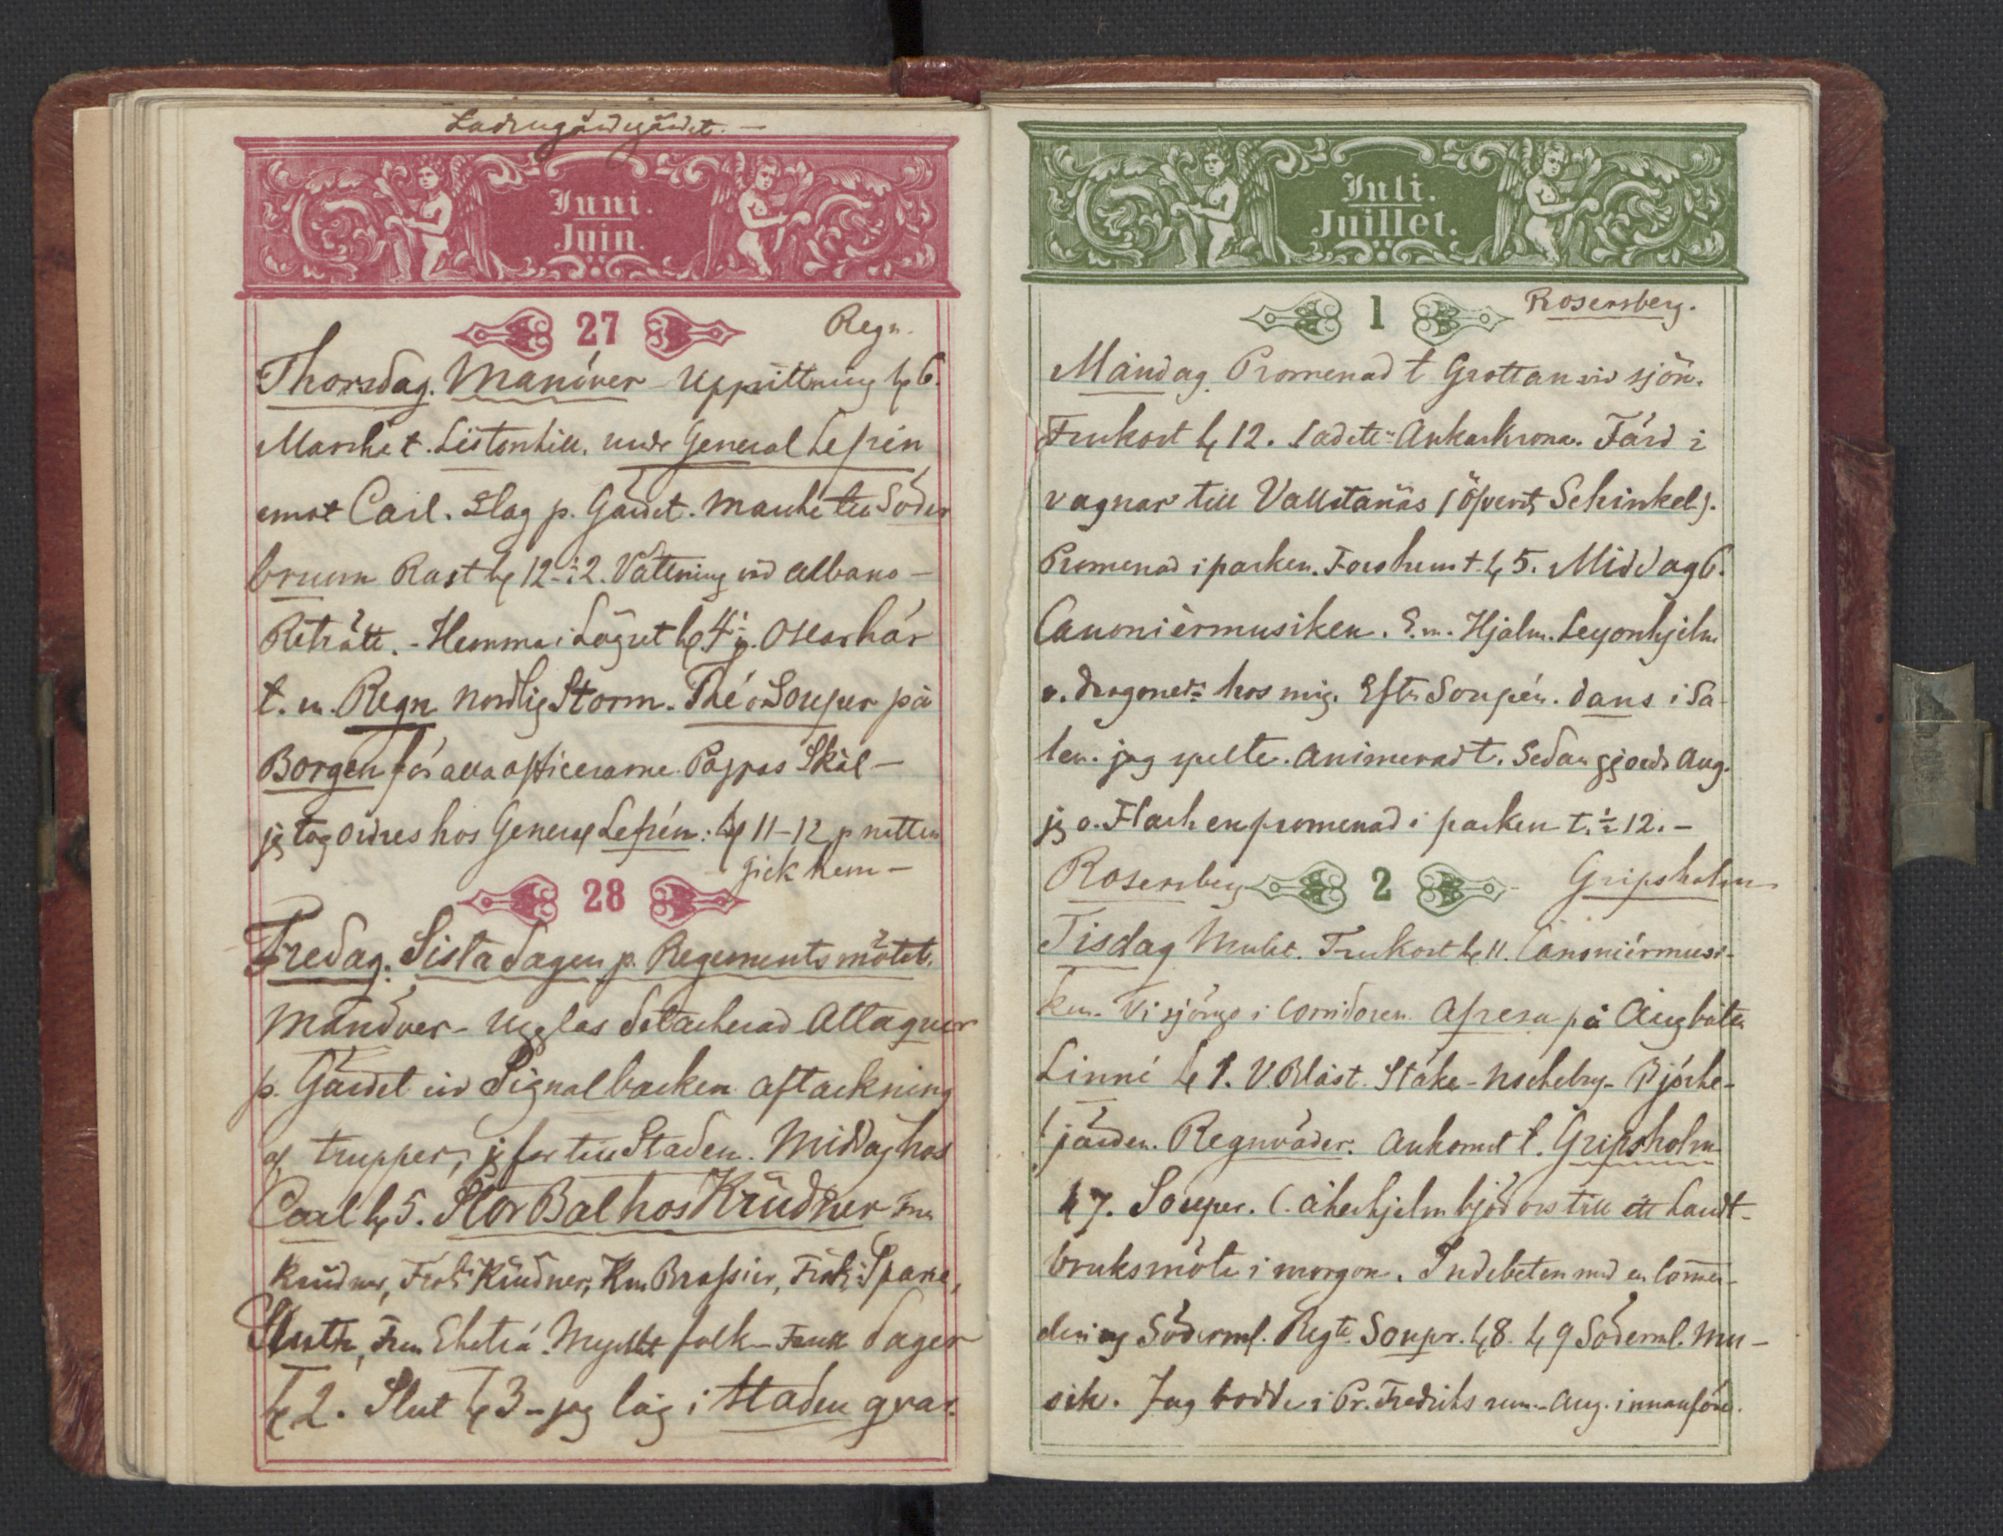 Ladugårdsgärdet. —
Juni.
Juin.
27 Regn.
Thorsdag. Manöver – Uppsittning kl 6.
Marche t. Listonhill. undr General Lefrén
emot Carl. Slag p. Gärdet. Marche till Söder
brunn Rast kl 12–½2. Vattning vid Albano –
Reträtt. – Hemma i Lägret kl 4 Oskar här
t. m. Regn nordlig Storm. Thé o Souper på
Borgen för alla officerarne. Pappas Skål –
jg tog ordres hos General Lefrén. kl 11–12 p natten
gick hem –
28
Fredag. Sista dagen p. Regementsmötet.
Manöver – Ugglas detacherad Attaquer
p. Gärdet vid Signalbacken aftackning
af trupper; jg for till Staden. Middag hos
Carl kl 5. Stor Bal hos Krüdner Fru
Krüdner, Frök: Krüdner, Brassier, Frök: Sparre,
Fru Mycket folk – dager
kl 2. Slut kl 3 – jag låg i Staden qvar.
Juli.
Juillet.
1 Rosersberg.
Måndag. Promenad t Grottan vid sjön.
Frukost kl 12. Cadette: Ankarkrona. Färd i
vagnar till Vallstanäs (Öfverst Schinkel).
Promenad i parken. Ters hemt. kl 5. Middag 6.
Canonièrmusiken. E.m. Hjalm. Leyonhjelm
o. dragonerr hos mig. Eftr Soupén. dans i Sa-
len. jag spelte. Animeradt. Sedan gjorde Aug.
jg o. Flach en promenad i parken t. ½ 12. –
Rosersberg 2 Gripsholm
Tisdag Mulet. Frukost kl 11. Canoniérmusi-
ken. Vi sjöngo i Corridoren Afresa på Ångbåten
Linné kl 1. V Blåst. Stäke – Björke-
fjärden. Regnväder. Ankomst t. Gripsholm
kl 7. Souper. C. Åkerhjelm bjöd oss till ett Landt-
bruksmöte i morgon. med en
dering Söderml. Regte. Soupr. kl 8. kl 9 Söderml. Mu-
sik. Jag bodde i Pr. Fredriks rum – Aug. innanföre.